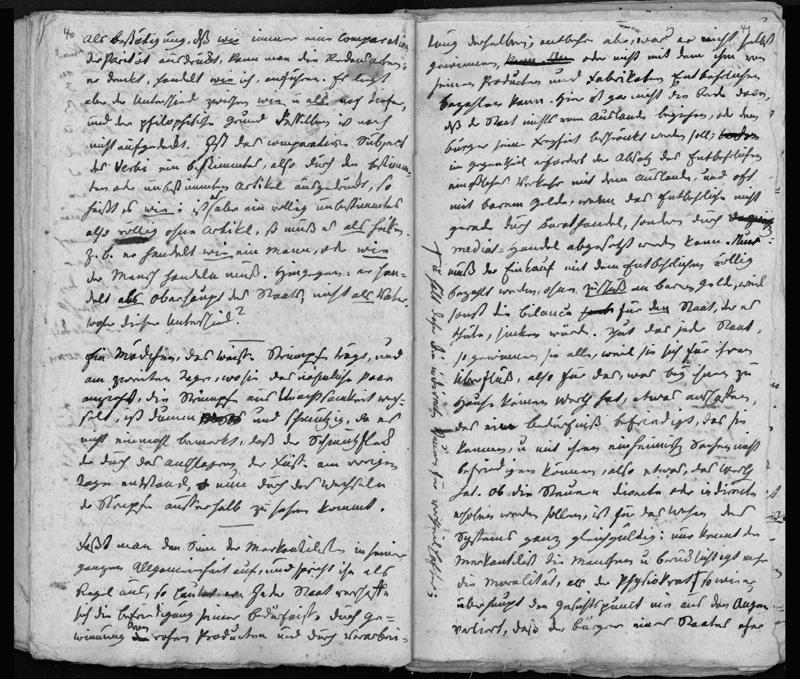 40
als bestätigung, daß wie immer eine Comparation
der Parität ausdrückt, kann man die Redensarten:
er denkt, handelt wie ich, anführen. Es liegt
aber der Unterschied zwischen wie u als noch tiefer,
und der philosophische Grund desselben ist noch
nicht aufgedeckt. Ist das comparations Subject
des Verbi ein bestimmtes, also durch den bestimm-
ten oder unbestimmten Artikel ausgedrückt, so
heißt es wie; ist aber ein völlig unbestimmtes
also völlig ohne Artikel, so muß es als heißen.
z. b. er handelt wie ein Mann, oder wie
der Mensch handeln muß. Hingegen: er han-
delt als Oberhaupt des Staats, nicht als Vater.
woher dieser Unterschied?
Ein Mädchen, das weiße Strümpfe trägt, und
am zweiten Tage, wo sie das nämliche paar
anzieht, die Strümpfe aus Unachtsamkeit wech-
selt, ist dumm und schmutzig, da es
nicht einmal bemerkt, daß der Schmutzfleck
der durch das der Füße am vorigen
Tage entstand, nun durch das Wechseln
der Strümpfe außerhalb zu sehen kommt.
Faßt man den Sinn der Merkantilisten in seiner
ganzen Allgemeinheit auf, und spricht ihn als
Regel aus, so lautet er: Jeder Staat verschaffe
sich die befriedigung seiner bedürfniße durch ge-
winnung der rohen Producten und durch Verarbei-
tung derselben; entbehre aber, was er nicht selbst
gewinnen, oder nicht mit dem ihm von
seinen Producten und Fabrikaten Entbehrlichen
bezahlen kann. Hier ist gar nicht die Rede davon,
daß der Staat nichts vom Auslande beziehen, oder dem
bürger seine Freyheit beschränkt werden soll;
im gegentheil erfordert der Absatz des Entbehrlichen
ein Verkehr mit dem Auslande, und oft
mit barem Gelde, wenn das Entbehrliche nicht
gerade durch barathandel, sondern durch
mediat-Handel abgesetzt werden kann. Nur
muß der Einkauf mit dem Entbehrlichen völlig
bezahlt werden, ohne Zuschuß an barem Gelde, weil
sonst die bilance für den Staat, der es
thäte, sinken würde. Thut das jeder Staat,
so gewinnen sie alle, weil sie sich für ihren
Überfluß, also für das, was bey ihnen zu
Hause keinen Werth hat, etwas anschaffen,
das ein bedürfniß befriedigt, das sie
kennen, u mit ihren einheimischen Sachen nicht
befriedigen können, also etwas, das Werth
hat. Ob die Steuern directe oder indirecte
erhoben werden sollen, ist für das Wesen des
Systems ganz gleichgültig: nur kennt der
Merkantilist die Menschen u berücksichtigt mehr
die Moralität, als der Physiokrat, so wie er
überhaupt den gesichtspunkt nie aus den Augen
verliert, daß der bürger eines Staates ohne